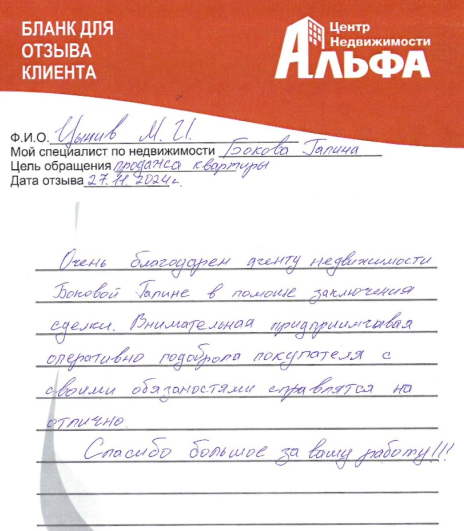 БЛАНК ДЛЯ
ОТЗЫВА
КЛИЕНТА
Центр
Недвижимости
АЛЬФА
Ф.И.О. Цынив М. И.
Мой специалист по недвижимости Бокова Галина
Цель обращения продажа квартиры
Дата отзыва 27.11.2024г.
Очень благодарен агенту недвижимости
Боковой Галине в помощи заключения
сделки. Внимательная придприимчивая
оперативно подоброла покупателя с
своими обязаностями справлятся на
отлично
Спасибо большое за вашу работу!!!